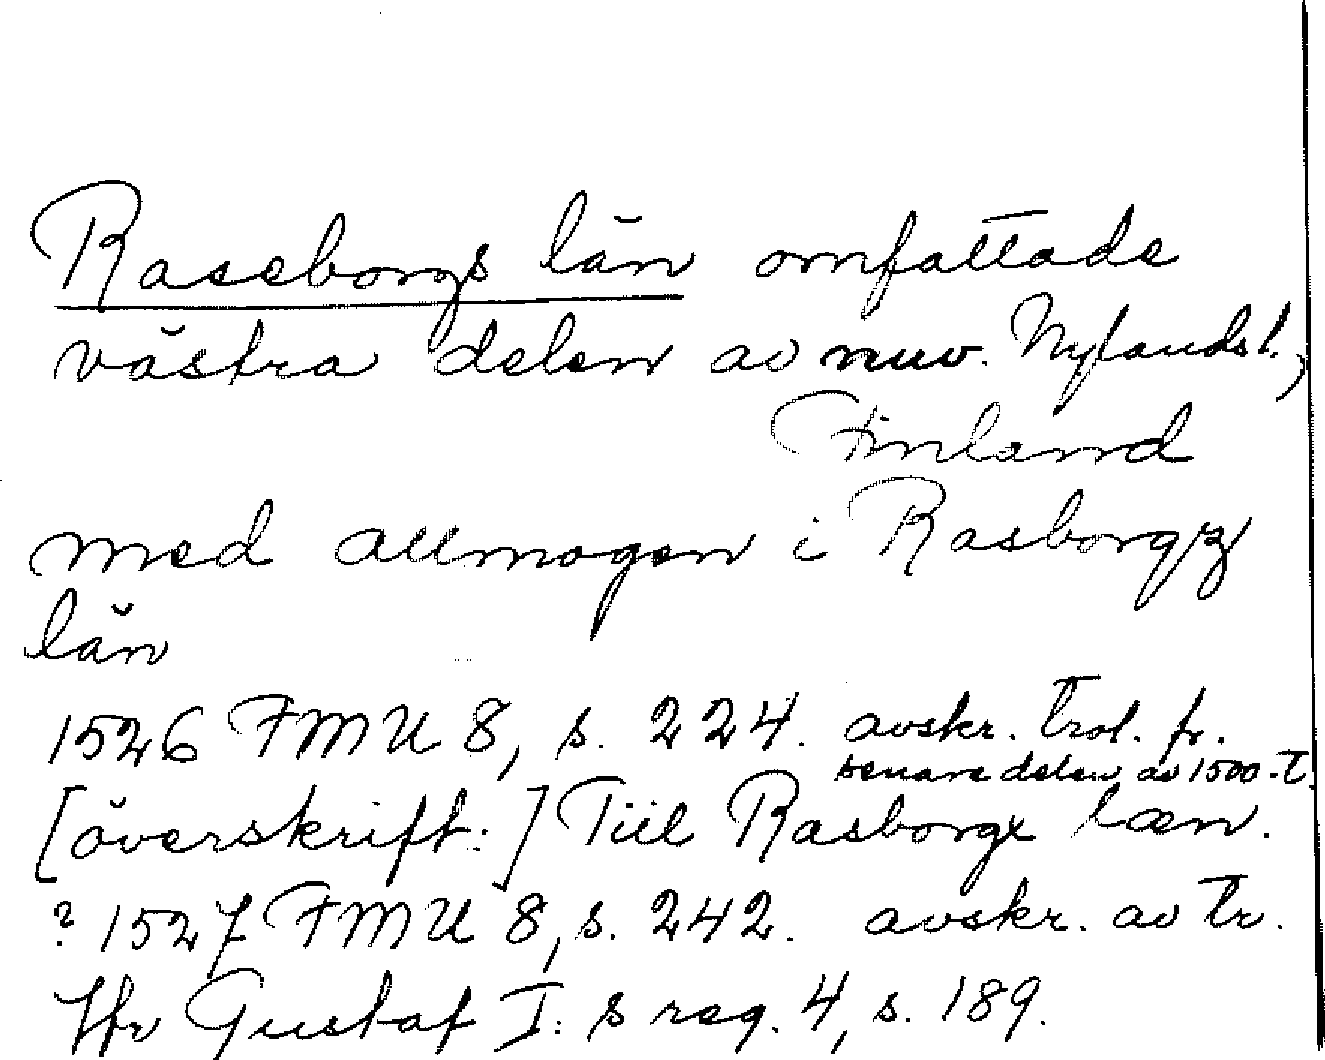 Raseborgs län omfattade
västra delen av nuv. Nylands l.,
Finland
med allmogen i Rasborgz
län
1526 FMU 8, s. 224. avskr. trol. fr.
senare delen av 1500-t.
[överskrift:] Till Rasborgx læn.
? 1527 FMU 8, s. 242. avskr. av tr.
Jfr Gustaf I:s reg. 4, s. 189.